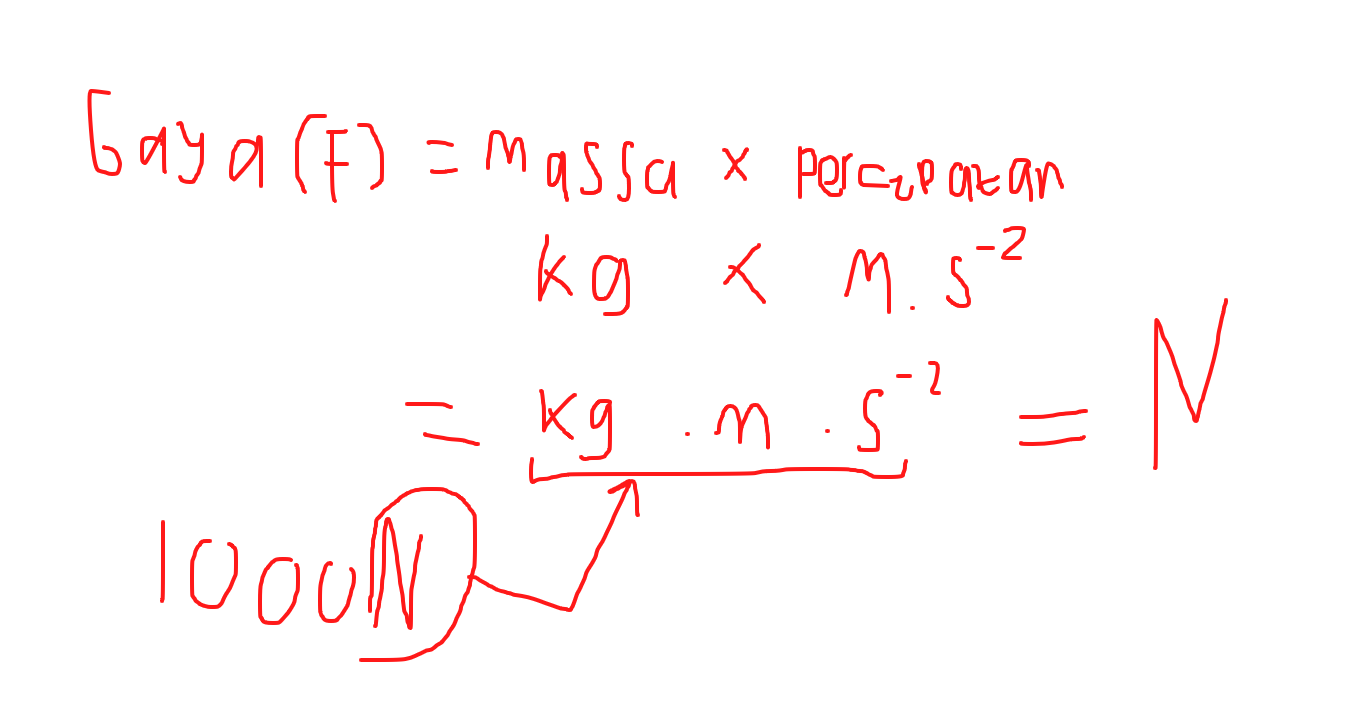 Gaya (F) = massa x percepatan
kg x m . s⁻²
= kg . m . s⁻² = N
1000N